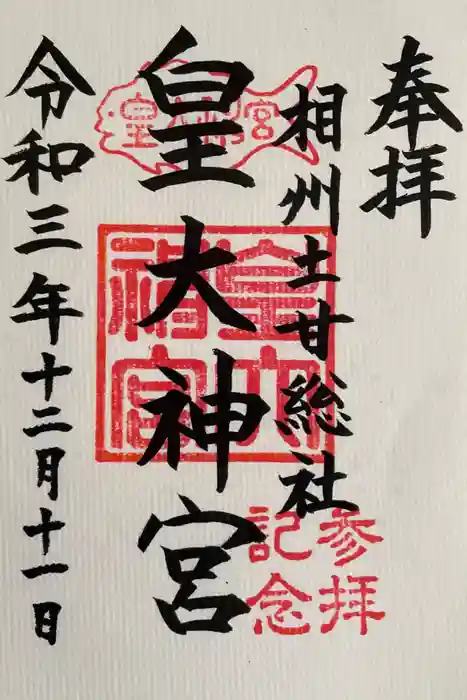 奉拝
相州土甘総社
皇大神宮
令和三年十二月十一日
皇大神宮
皇大神宮
参拝
記念